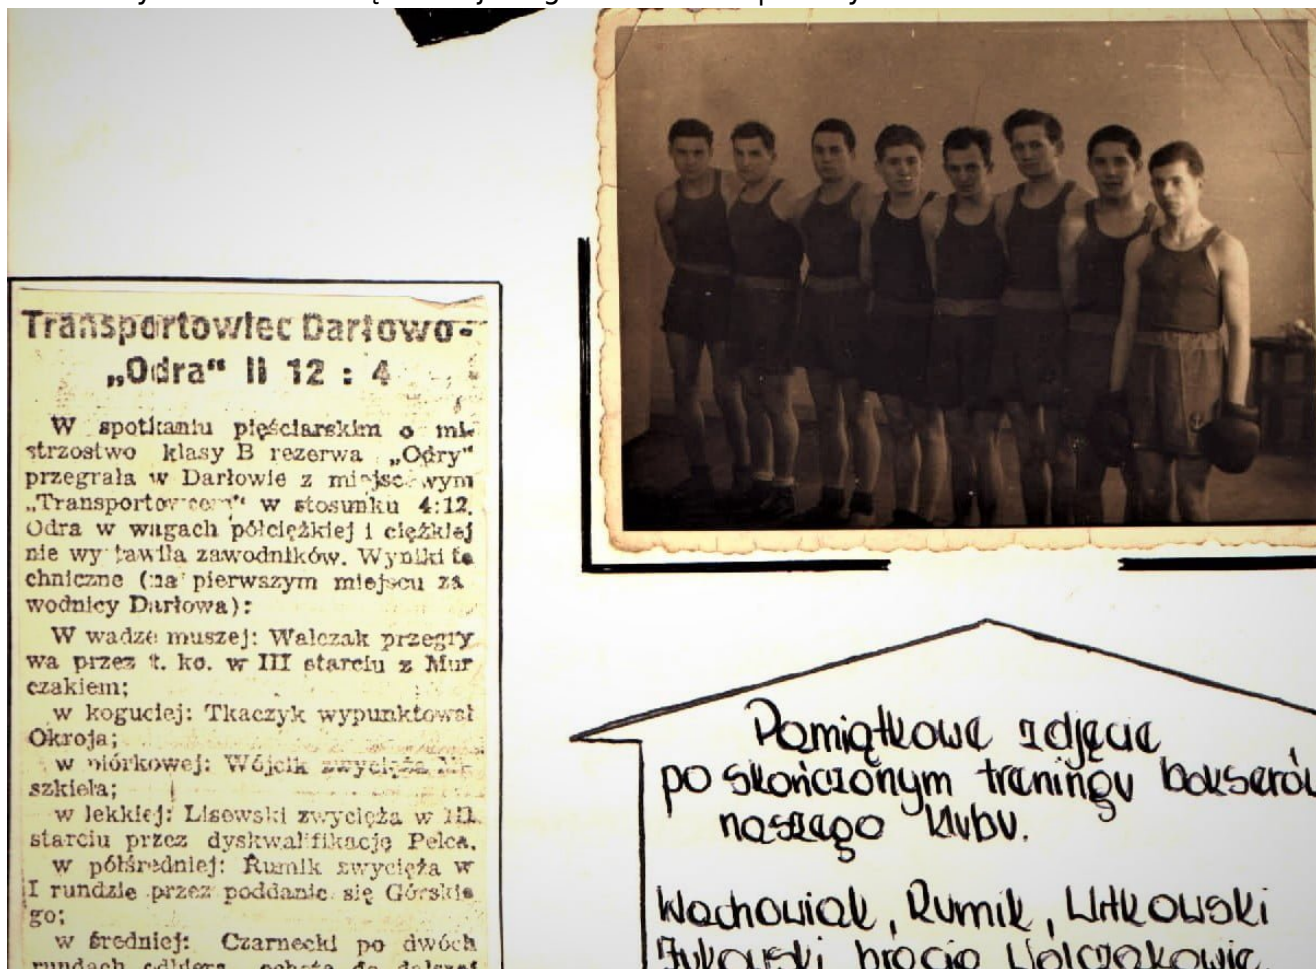 Transportowiec Darłowo-
„Odra“ II 12 : 4
W spotkaniu pięściarskim o mi-
strzostwo klasy B rezerwa „Odry"
przegrała w Darłowie z miejscowym
„Transportowcem" w stosunku 4:12.
Odra w wagach półciężkiej i ciężkiej
nie wystawiła zawodników. Wyniki te
chniczne (na pierwszym miejscu za
wodnicy Darłowa):
W wadze muszej: Walczak przegry
wa przez t. ko. w III starciu z Mur
czakiem;
w koguciej: Tkaczyk wypunktował
Okroja;
w piórkowej: Wójcik zwycięża
szkieła;
w lekkiej: Lisowski zwycięża w III
starciu przez dyskwalifikację Pelca.
w półśredniej: Rumik zwycięża w
I rundzie przez poddanie się Górskie
go;
w średniej: Czarnecki po dwóch
rundach
Pamiątkowe zdjęcie
po skończonym treningu bokserów
naszego klubu.
Wachowiak, Rumik, Witkowski
Żukowski bracia Walczakowie